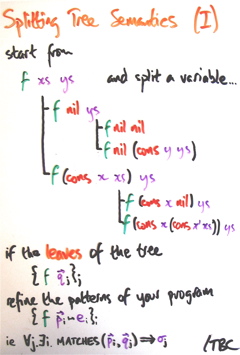 Splitting Tree Semantics (I)
start from
f xs ys and split a variable...
f nil ys
f nil nil
f nil (cons y ys)
f (cons x xs) ys
f (cons x nil) ys
f (cons x (cons x' xs')) ys
if the leaves of the tree
{f q⃗j}j
refine the patterns of your program
{f p⃗i ↦ ei}i
ie ∀j.∃i. MATCHES(p⃗i, q⃗j) ⇒ σj
/TBC